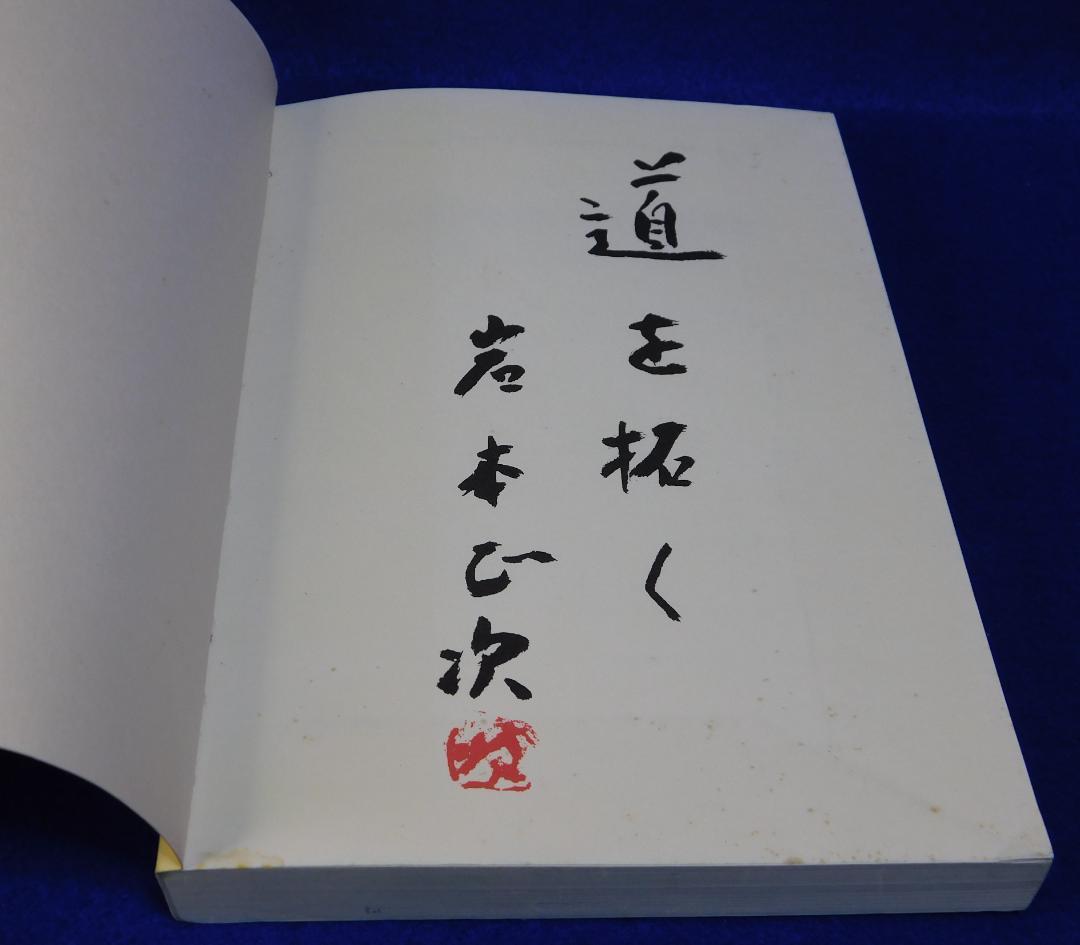 道を拓く
岩本正次